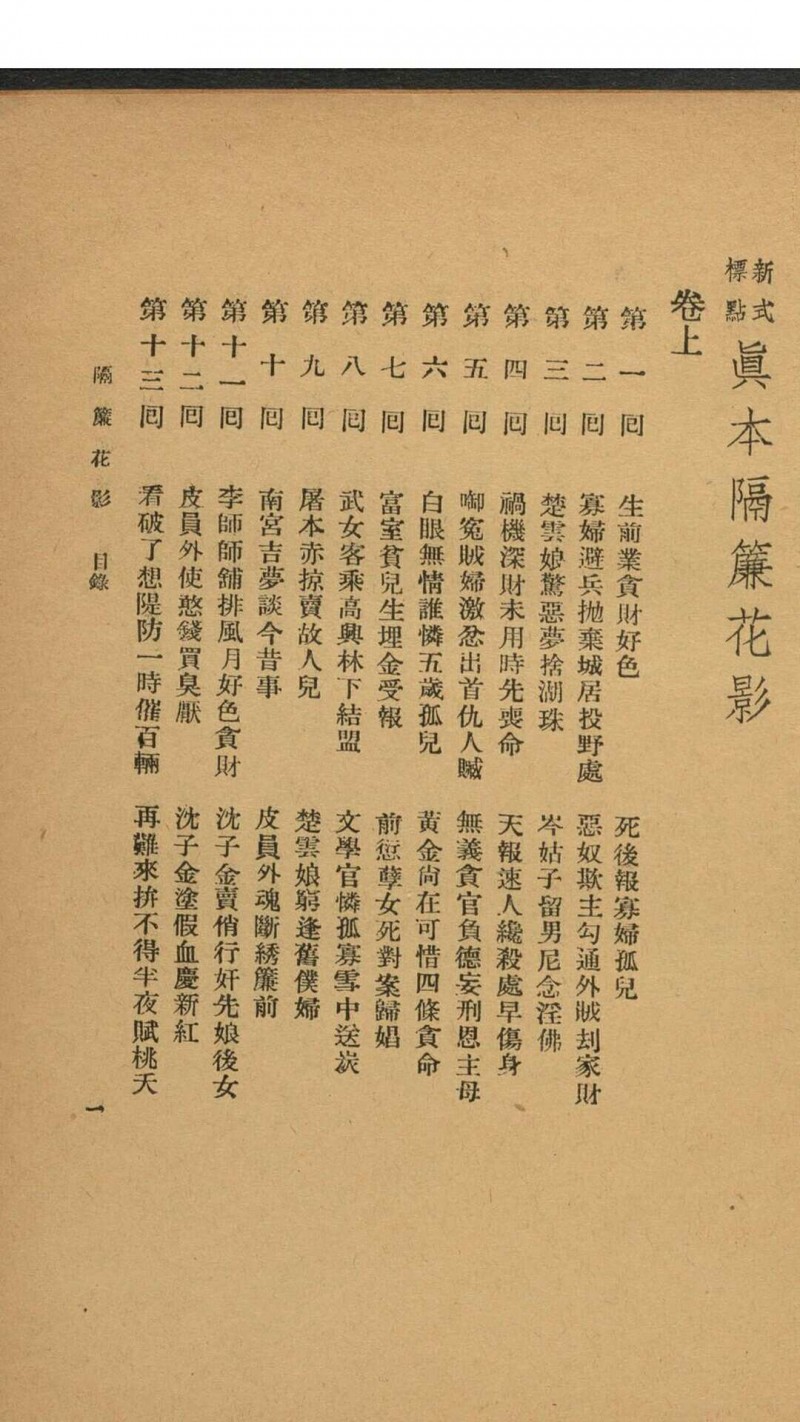 新式標點
眞本隔簾花影
卷上
第一囘 生前業貪財好色 死後報寡婦孤兒
第二囘 寡婦避兵抛棄城居投野處 惡奴欺主勾通外賊刦家財
第三囘 楚雲娘驚惡夢捨湖珠 岑姑子留男尼念淫佛
第四囘 禍機深財未用時先喪命 天報速人纔殺處早傷身
第五囘 啣冤賊婦激忿出首仇人贓 無義貪官負德妄刑恩主母
第六囘 白眼無情誰憐五歲孤兒 黃金尙在可惜四條貪命
第七囘 富室貧兒生埋金受報 前愆孽女死對案歸娼
第八囘 武女客乘高興林下結盟 文學官憐孤寡雪中送炭
第九囘 屠本赤掠賣故人兒 楚雲娘窮逢舊僕婦
第十囘 南宮吉夢談今昔事 皮員外魂斷綉簾前
第十一囘 李師師舖排風月好色貪財 沈子金賣俏行奸先娘後女
第十二囘 皮員外使憨錢買臭厭 沈子金塗假血慶新紅
第十三囘 看破了想隄防一時催百輛 再難來拚不得半夜賦桃夭
隔簾花影 目錄
一